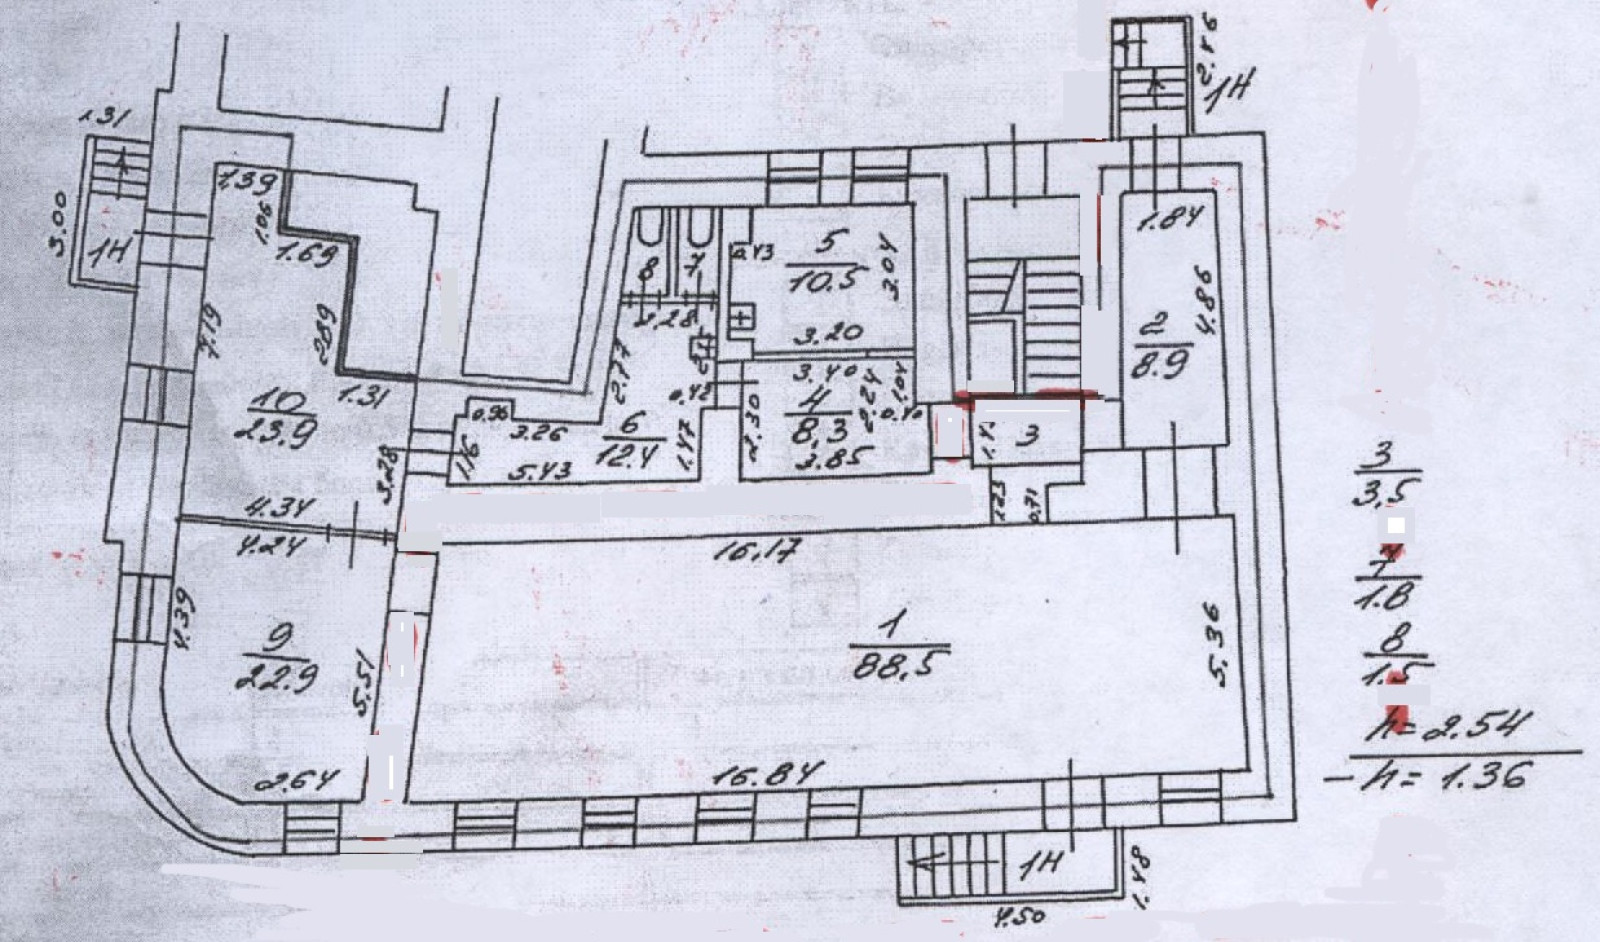 2.86
1Н
1.31
3.00
1Н
1.39
1.06
1.69
2.89
7.19
1.31
10
23.9
3.28
4.34
8
7
2.28
2.77
0.43
5
10.5
3.04
3.20
1.84
4.86
2
8.9
0.96
3.26
1.16
5.43
6
12.4
0.42
1.47
2.30
3.40
4
8.3
2.24
1.04
0.40
3.85
3
1.23
0.71
4.24
4.39
9
22.9
5.51
2.64
16.17
1
88.5
5.36
16.84
1Н
1.48
4.50
3
3.5
7
1.8
8
1.5
h=2.54
- h= 1.36